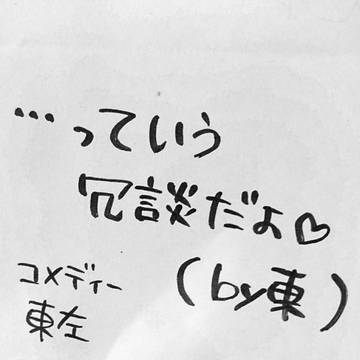 …っていう
冗談だよ♡
(by東)
コメディー
東左